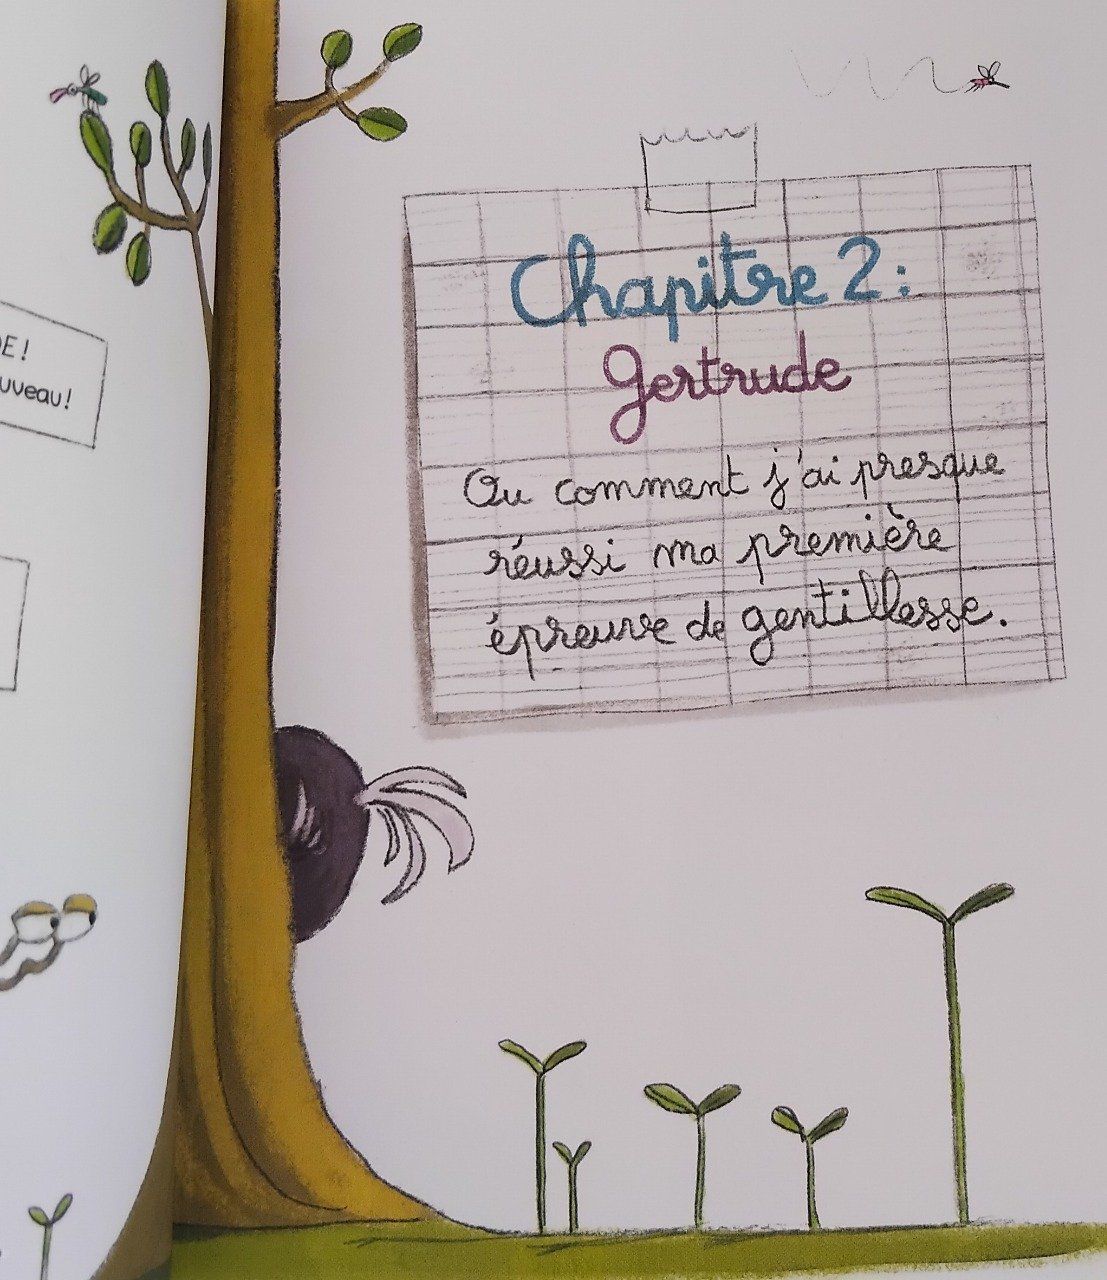 E!
uveau!
Chapitre 2:
Gertrude
Ou comment j'ai presque
réussi ma première
épreuve de gentillesse.